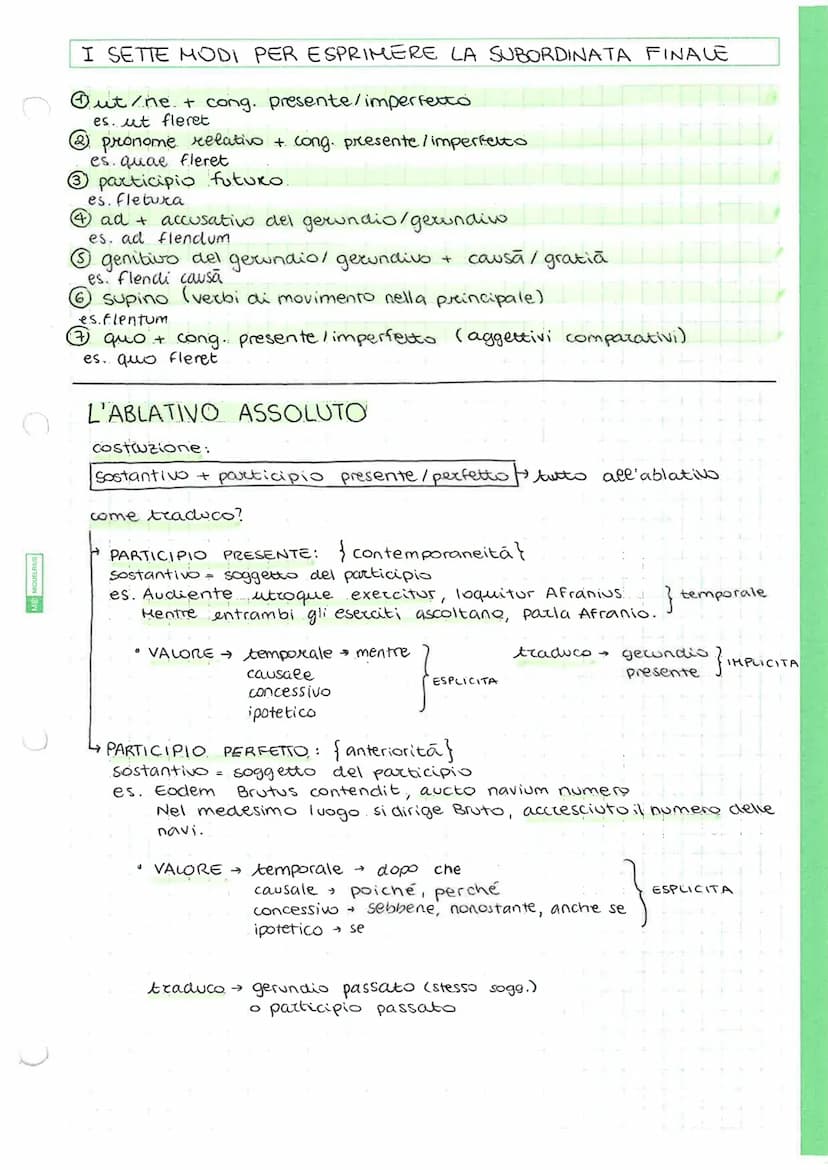 I SETTE MODI PER ESPRIMERE LA SUBORDINATA FINALE
① ut/ne + cong. presente/imperfetto
es. ut fleret
② pronome relativo + cong. presente/imperfetto
es. quae fleret
③ participio futuro
es. fletura
④ ad + accusativo del gerundio/gerundivo
es. ad flendum
⑤ genitivo del gerundio/gerundivo + causā/gratiā
es. flendi causā
⑥ supino (verbi di movimento nella principale)
es. flentum
⑦ quo + cong. presente/imperfetto (aggettivi comparativi)
es. quo fleret
L'ABLATIVO ASSOLUTO
costruzione:
sostantivo + participio presente/perfetto → tutto all'ablativo
come traduco?
→ PARTICIPIO PRESENTE: {contemporaneità}
sostantivo = soggetto del participio
es. Audiente utroque exercitur, loquitur Afranius. } temporale
Mentre entrambi gli eserciti ascoltano, parla Afranio.
• VALORE → temporale → mentre
causale
concessivo
ipotetico
} ESPLICITA
traduco → gerundio
presente
} IMPLICITA
→ PARTICIPIO PERFETTO: {anteriorità}
sostantivo = soggetto del participio
es. Eodem Brutus contendit, aucto navium numero
Nel medesimo luogo si dirige Bruto, accresciuto il numero delle
navi.
• VALORE → temporale → dopo che
causale → poiché, perché
concessivo → sebbene, nonostante, anche se
ipotetico → se
} ESPLICITA
traduco → gerundio passato (stesso sogg.)
o participio passato